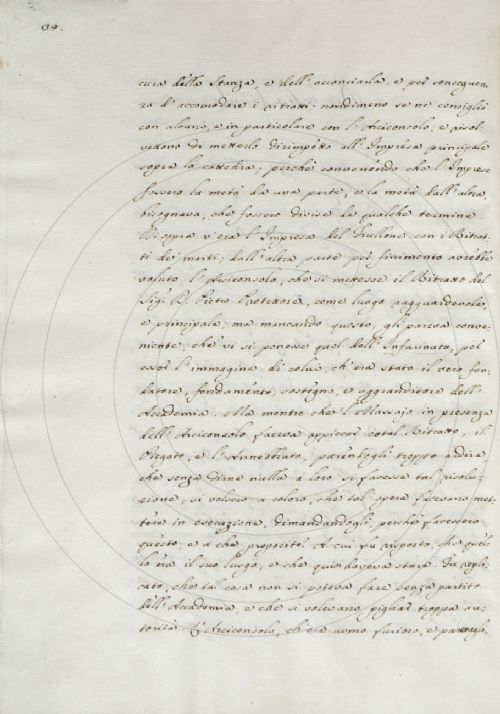 94.
cura della Stanza, e dell' acconciarla, e per conseguen-
za d' accomodare i ritratti: nondimeno se ne consigliò
con alcuni, e in particolare con l' Arciconsolo, e risol-
vettono di metterlo dirimpetto all' Impresa principale
sopra la cattedra; perchè convenendo che l' Imprese
fossero la metà da una parte, e la metà dall' altra,
bisognava, che fossero divise da qualche termine
Di sopra v' era l' Impresa del Frullone con i Ritrat-
ti de' morti; dall' altra parte per finimento avrebbe
voluto l' Arciconsolo, che si mettesse il Ritratto del
Sig.r D. Pietro Protettore, come luogo ragguardevole,
e principale; ma mancando questo, gli pareva conve-
niente, che vi si ponesse quel dell' Infarinato, per
esser l' immagine di colui, ch' era stato il vero fon-
datore, fondamento, sostegno, e aggranditore dell'
Accademia. Ma mentre che 'l Massaio in presenza
dell' Arciconsolo faceva appiccar cotal Ritratto, il
Rigato, e l' Annebbiato, parendogli troppo ardire
che senza dirne nulla a loro si facesse tal risolu-
zione, si volsero a coloro, che tal opera facevano met-
tere in esecuzione, dimandandogli, perchè facessero
questo, e a che proposito? A cui fu risposto, che quel-
lo era il suo luogo, e che quivi doveva stare. Fu repli-
cato, che tal cosa non si poteva fare senza partito
dell' Accademia, e che si volevano pigliar troppa au-
torità. L' Arciconsolo, ch' era uomo furioso, e parevagli,